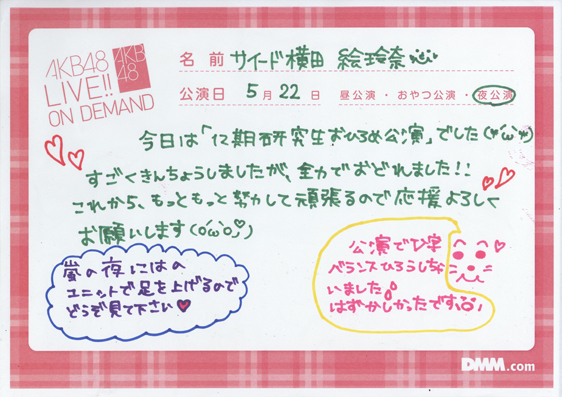 AKB48
LIVE!!
ON DEMAND
AKB
48
名前 サイード横田 絵玲奈
公演日 5月22日 昼公演・おやつ公演・夜公演
今日は「12期研究生おひろめ公演」でした(*'ω'*)
すごくきんちょうしましたが、全力でおどれました!!
これから、もっともっと努力して頑張るので応援よろしく
お願いします(o'ω'o)
嵐の夜にはの
ユニットで足を上げるので
どうぞ見て下さい♥
公演でひ字
バランスひろうしちゃ
いました
はずかしかったです
DMM.com